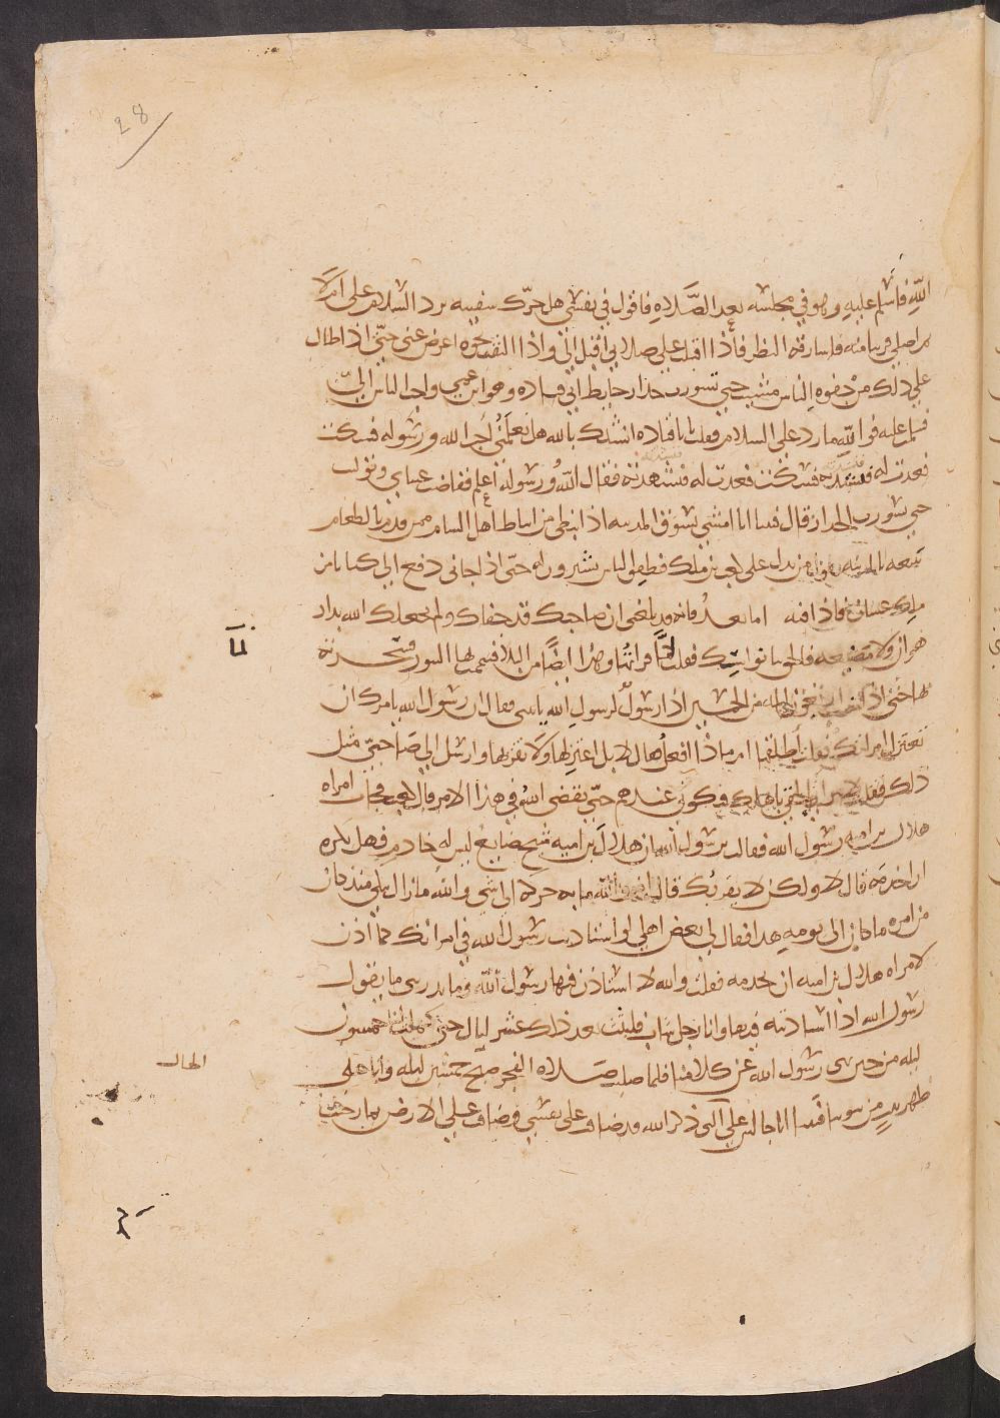 28
الله فاسلم عليه وهو في مجلسه بعد الصلاه فاقول في نفسي هل حرك شفتيه برد السلام علي ام لا
ثم اصلي قريبا منه فاسارقه النظر فاذا اقبلت علي صلاتي اقبل الي واذا التفت نحوه اعرض عني حتى اذا طال
علي ذلك من جفوه الناس مشيت حتى تسورت جدار حايط ابي قتاده وهو ابن عمي واحب الناس الي
فسلمت عليه فوالله ما رد علي السلام فقلت يا ابا قتاده انشدك بالله هل تعلمني احب الله ورسوله فسكت
فعدت له فنشدته فسكت فعدت له فنشدته فقال الله ورسوله اعلم ففاضت عيناي وتوليت
حتى تسورت الجدار قال فبينا انا امشي بسوق المدينه اذا نبطي من انباط اهل الشام ممن قدم بالطعام
يبيعه بالمدينه يقول من يدل على كعب بن ملك فطفق الناس يشيرون له حتى اذا جاني دفع الي كتابا من
ملك غسان فاذا فيه اما بعد فانه قد بلغني ان صاحبك قد جفاك ولم يجعلك الله بدار
هوان ولا مضيعه فالحق بنا نواسك فقلت لما قراتها وهذا ايضا من البلا فتيممت بها التنور فسجرته
لما
بها حتى اذا مضت اربعون ليله من الخمسين اذا رسول لرسول الله ياتيني فقال ان رسول الله يامرك ان
تعتزل امراتك فقلت اطلقها ام ماذا افعل قال لا بل اعتزلها ولا تقربها وارسل الى صاحبي مثل
ذلك فقلت لامراتي الحقي باهلك فتكوني عندهم حتى يقضي الله في هذا الامر قال كعب فجات امراه
هلال بن اميه رسول الله فقالت يرسول الله ان هلال بن اميه شيخ ضايع ليس له خادم فهل تكره
ان اخدمه قال لا ولكن لا يقربك قالت انه والله ما به حركه الى شي والله ما زال يبكي منذ كان
من امره ما كان الى يومه هذا فقال لي بعض اهلي لو استاذنت رسول الله في امراتك كما اذن
لامراه هلال بن اميه ان تخدمه فقلت والله لا استاذن فيها رسول الله وما يدريني ما يقول
رسول الله اذا استاذنته فيها وانا رجل شاب فلبثت بعد ذلك عشر ليال حتى كملت لنا خمسون
ليله من حين نهى رسول الله عن كلامنا فلما صليت صلاه الفجر صبح خمسين ليله وانا على
الحال
ظهر بيت من بيوتنا فبينا انا جالس على ذكر الله قد ضاقت علي نفسي وضاقت علي الارض بما رحبت